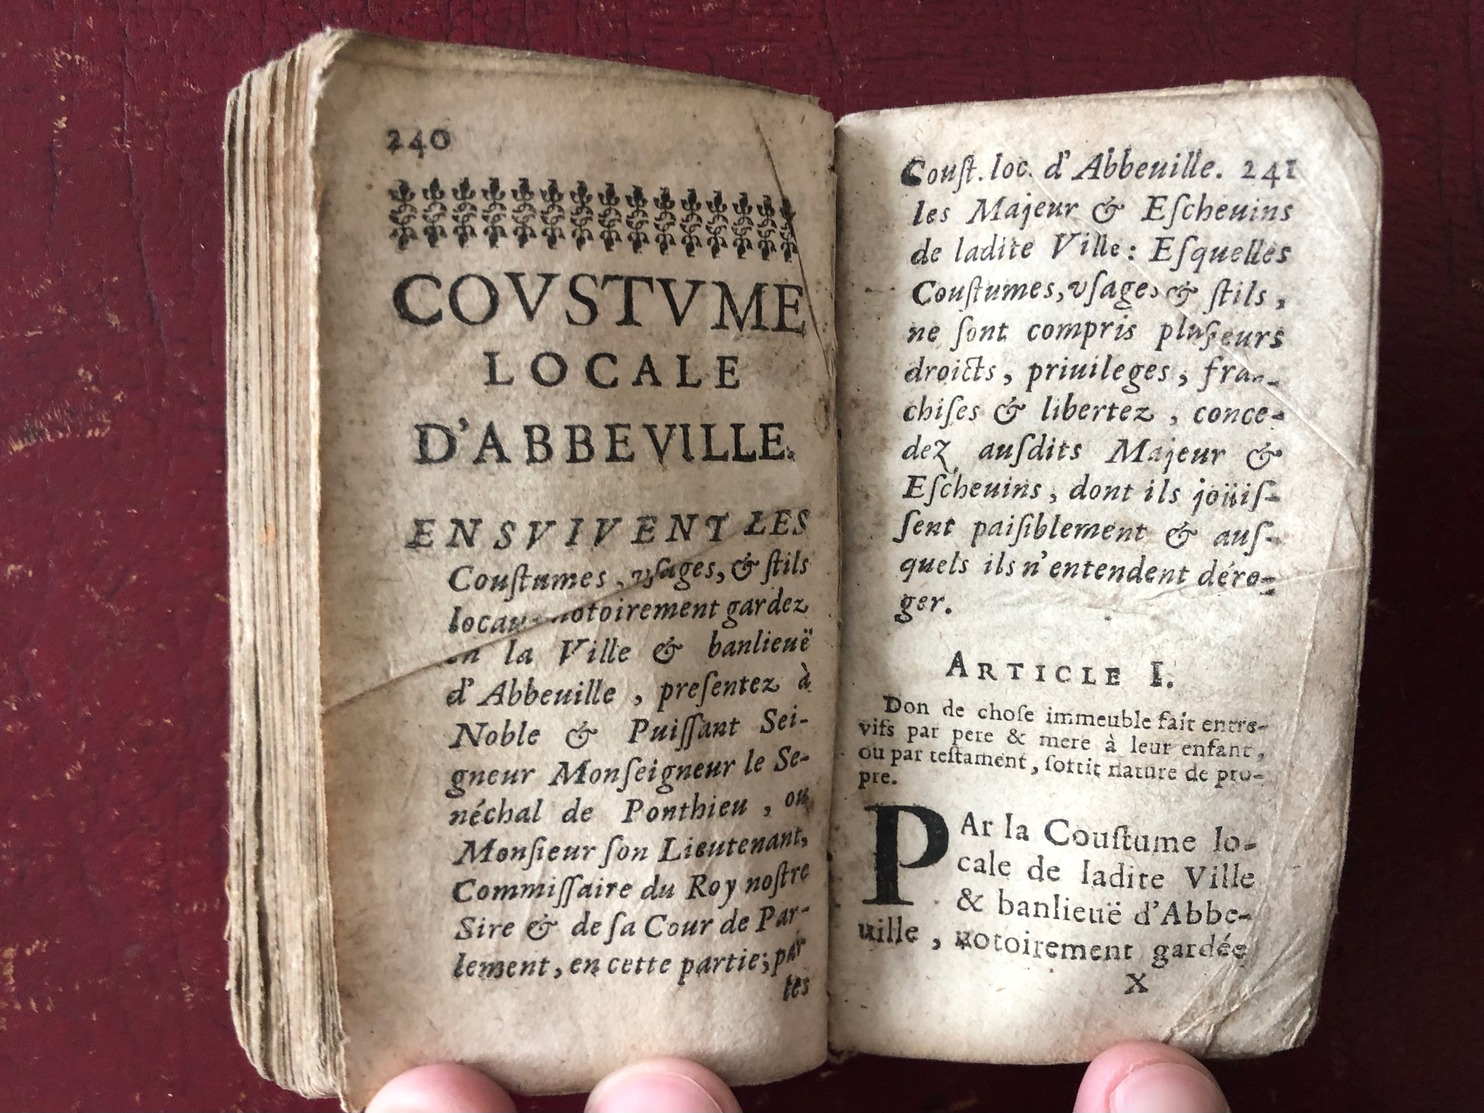 240
COVSTVME
LOCALE
D'ABBEVILLE.
ENSVIVENT LES
Couſtumes, vſages, & ſtils
notoirement gardez
la Ville & banlieuë
d'Abbeuille, preſentez à
Noble & Puiſſant Sei-
gneur Monſeigneur le Se-
néchal de Ponthieu, ou
Monſieur ſon Lieutenant,
Commiſſaire du Roy noſtre
Sire & de ſa Cour de Par-
lement, en cette partie, par
les
Couſt. loc. d'Abbeuille. 241
les Majeur & Eſcheuins
de ladite Ville : Eſquelles
Couſtumes, vſages & ſtils,
ne ſont compris pluſieurs
droicts, priuileges, fran-
chiſes & libertez, conce-
dez auſdits Majeur &
Eſcheuins, dont ils joüiſ-
ſent paiſiblement & auſ-
quels ils n'entendent déro-
ger.
ARTICLE I.
Don de choſe immeuble fait entre-
vifs par pere & mere à leur enfant,
ou par teſtament, ſortit nature de pro-
pre.
PAr la Couſtume lo-
cale de ladite Ville
& banlieuë d'Abbe-
uille, notoirement gardée
X